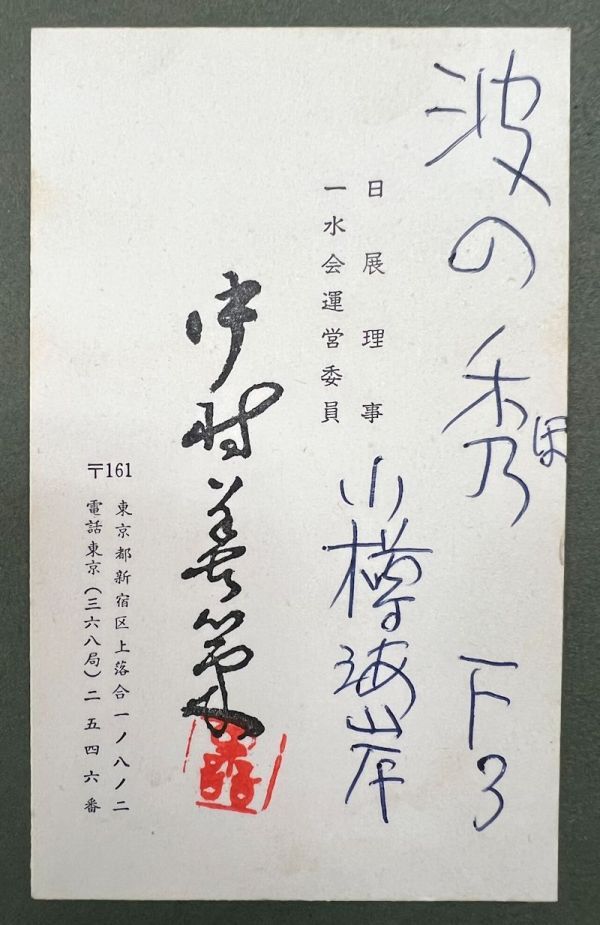 波の秀 F3
ほ
小樽海岸
日展理事
一水会運営委員
中村善策
〒161
東京都新宿区上落合一ノ八ノ二
電話東京(三六八局)二五四六番